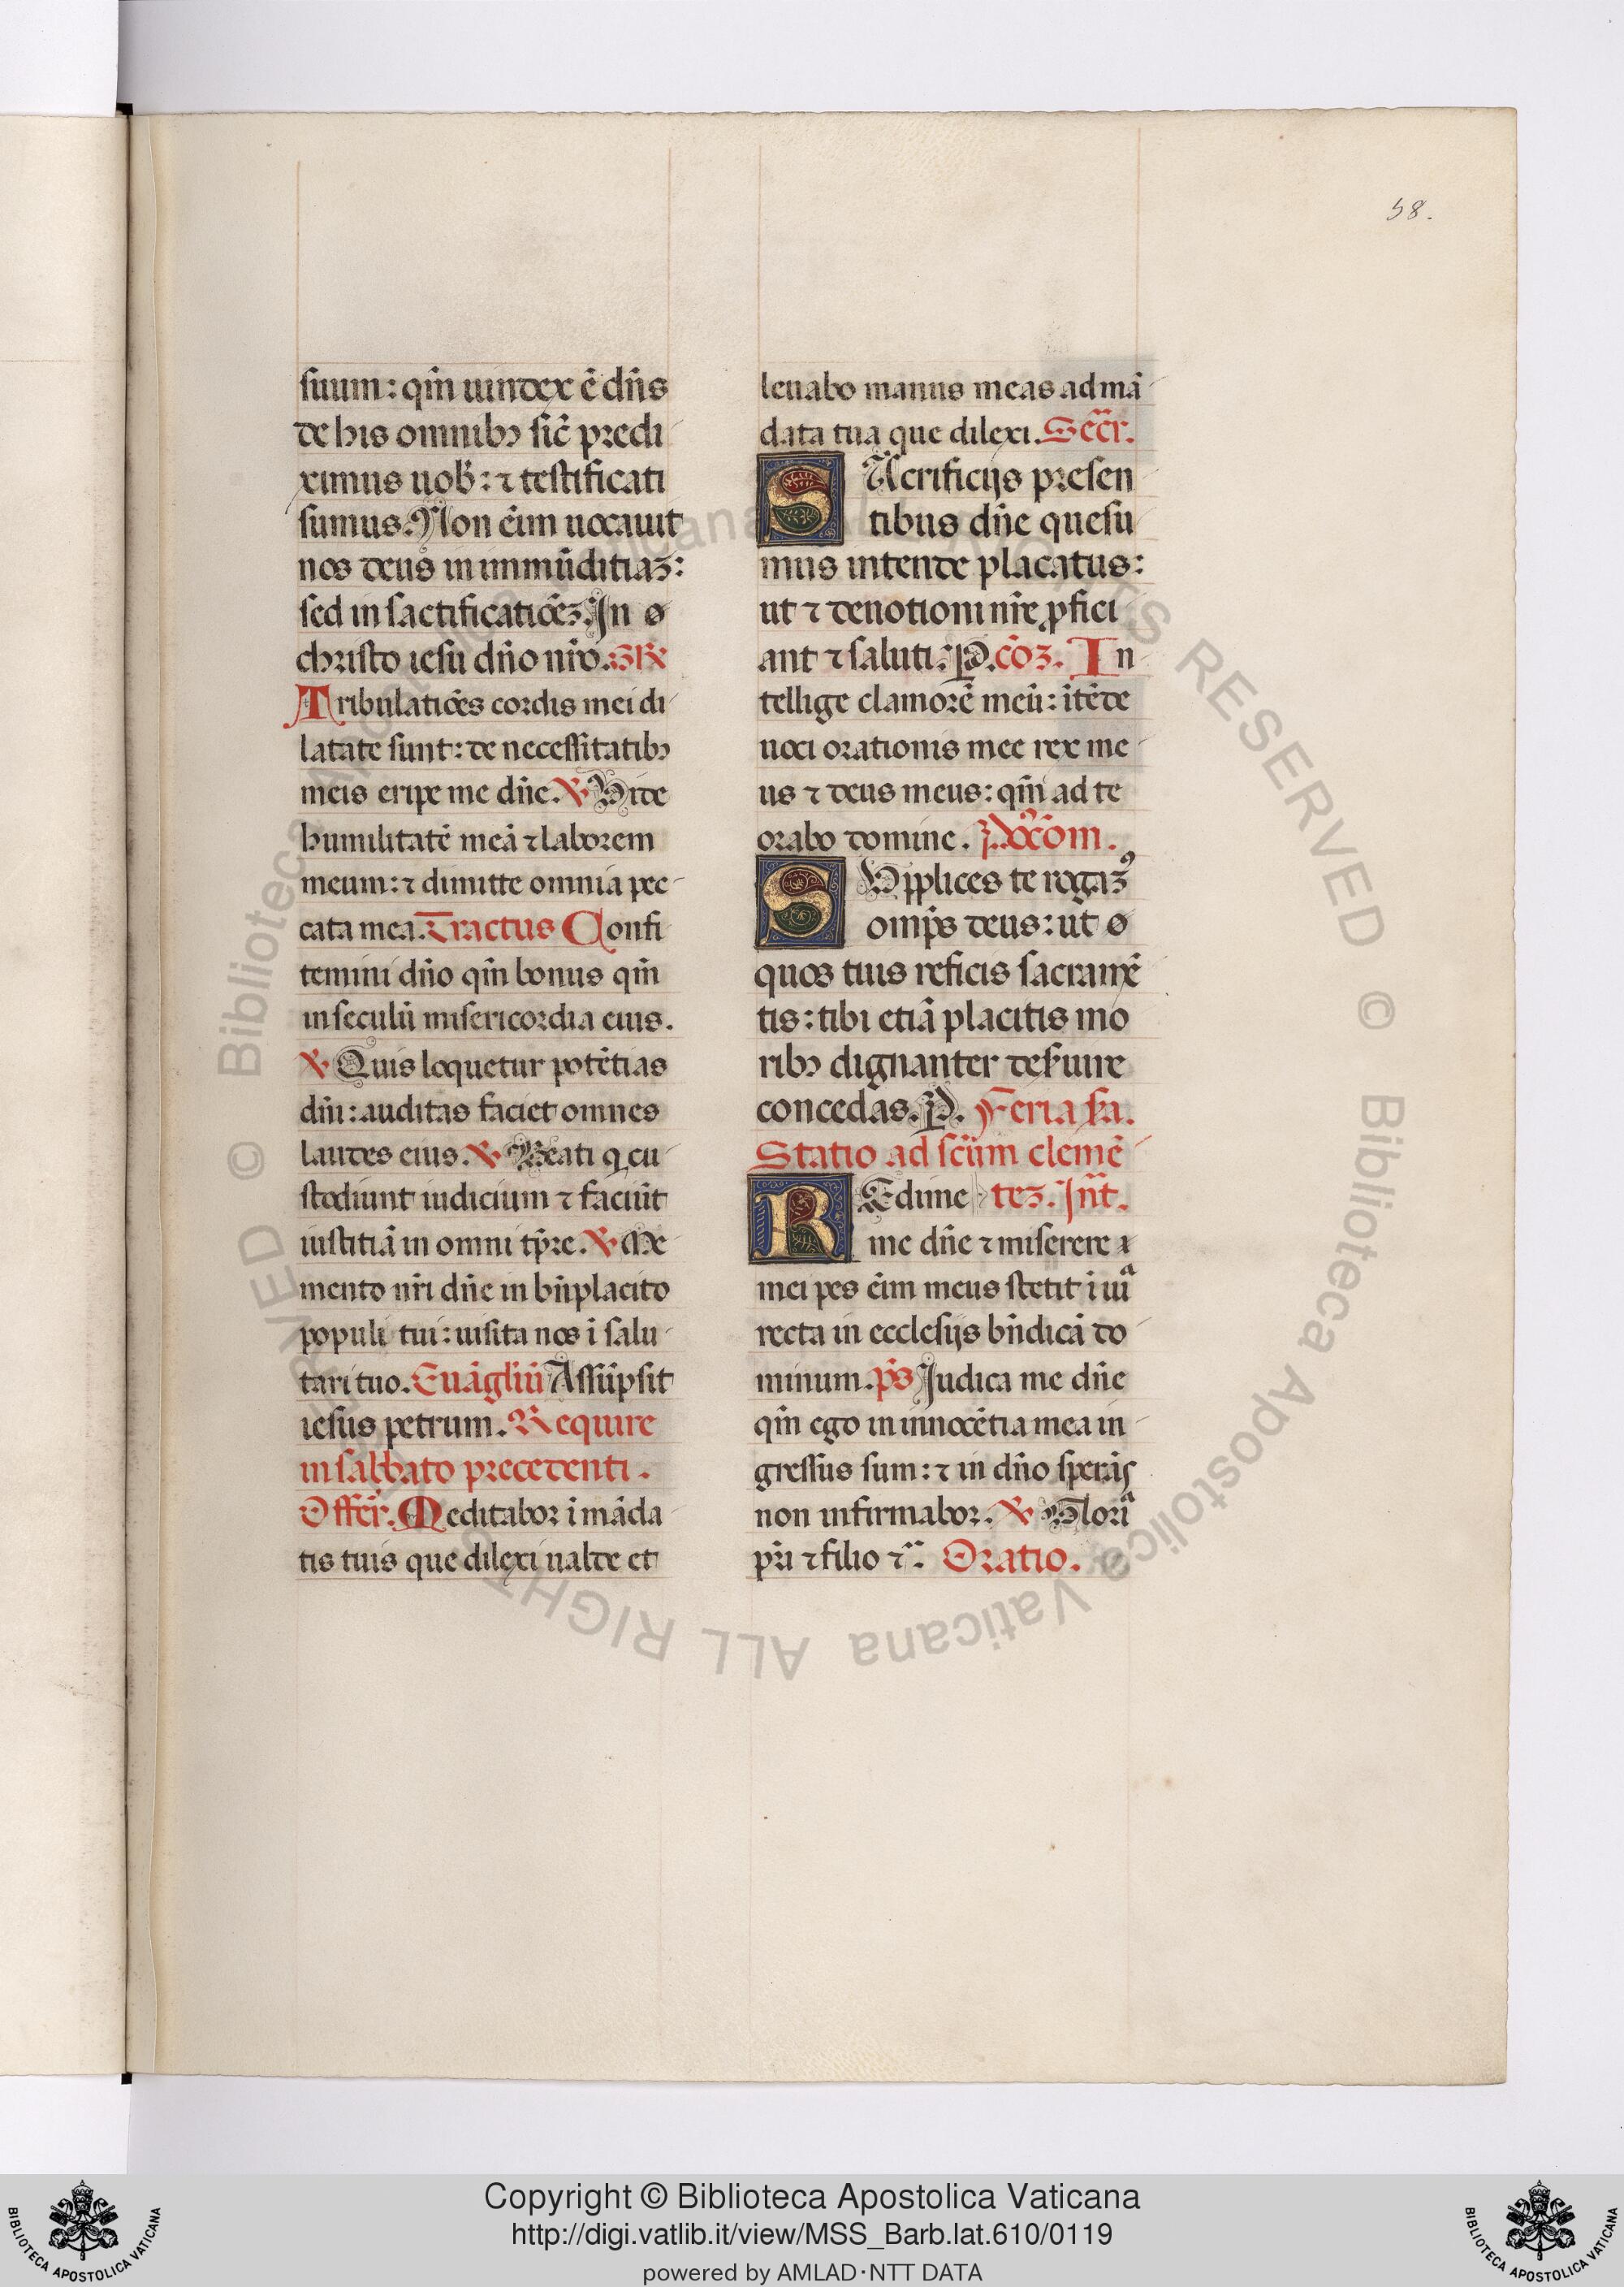 58.
suum: qm̄ uindex ē dn̄s
de his omnibꝫ sic̄ predi
ximus uob̄: ⁊ testificati
sumus. Non ei̅m uocauit
nos deus in immūditiaꝫ:
sed in sāctificatiōeꝫ. In ø
christo iesu dn̄o nr̄o. GR̄
Tribulatiōes cordis mei di
latate sunt: de necessitatibꝫ
meis eripe me dn̄e. ℣ Vide
humilitatē meā ⁊ laborem
meum: ⁊ dimitte omnia pec
cata mea. Tractus Confi
temini dn̄o qm̄ bonus qm̄
in seculū misericordia eius.
℣ Quis loquetur potētias
dn̄i: auditas faciet omnes
laudes eius. ℣ Beati q cu
stodiunt iudicium ⁊ faciūt
iustitiā in omni tp̄re. ℣ Me
mento nr̄i dn̄e in bn̄placito
populi tui: uisita nos ī salu
tari tuo. Euāgliū Assūpsit
iesus petrum. Require
in sabbato precedenti.
Offer̄. Meditabor ī māda
tis tuis que dilexi ualde et
leuabo manus meas ad mā
data tua que dilexi. Secr̄.
SAcrificijs presen
tibus dn̄e quesu
mus intende placatus:
ut ⁊ deuotioni nr̄e ꝓfici
ant ⁊ saluti. P. cōꝫ. In
tellige clamorē meū: ītēde
uoci orationis mee rex me
us ⁊ deus meus: qm̄ ad te
orabo domine. P̄ocōm.
SUpplices te rogaꝫꝰ
omp̄s deus: ut ø
quos tuis reficis sacramē
tis: tibi etiā placitis mo
ribꝫ dignanter des̄uire
concedas. P. Feria s̄a.
Statio ad scūm clemē
REdime teꝫ. Int̄.
me dn̄e ⁊ miserere
mei pes ei̅m meus stetit ī uia
recta in ecclesijs bn̄dicā do
minum. ps̄ Judica me dn̄e
qm̄ ego in innocētia mea in
gressus sum: ⁊ in dn̄o sperās
non infirmabor. ℣ Gloria
pr̄i ⁊ filio ⁊c̄. Oratio.
© Biblioteca Apostolica Vaticana ALL RIGHTS RESERVED
Copyright © Biblioteca Apostolica Vaticana
http://digi.vatlib.it/view/MSS_Barb.lat.610/0119
powered by AMLAD·NTT DATA
BIBLIOTECA APOSTOLICA VATICANA
BIBLIOTECA APOSTOLICA VATICANA